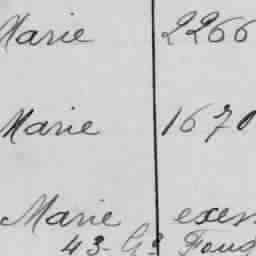 Marie 2266
Marie 1670
Marie exem
43 - G.